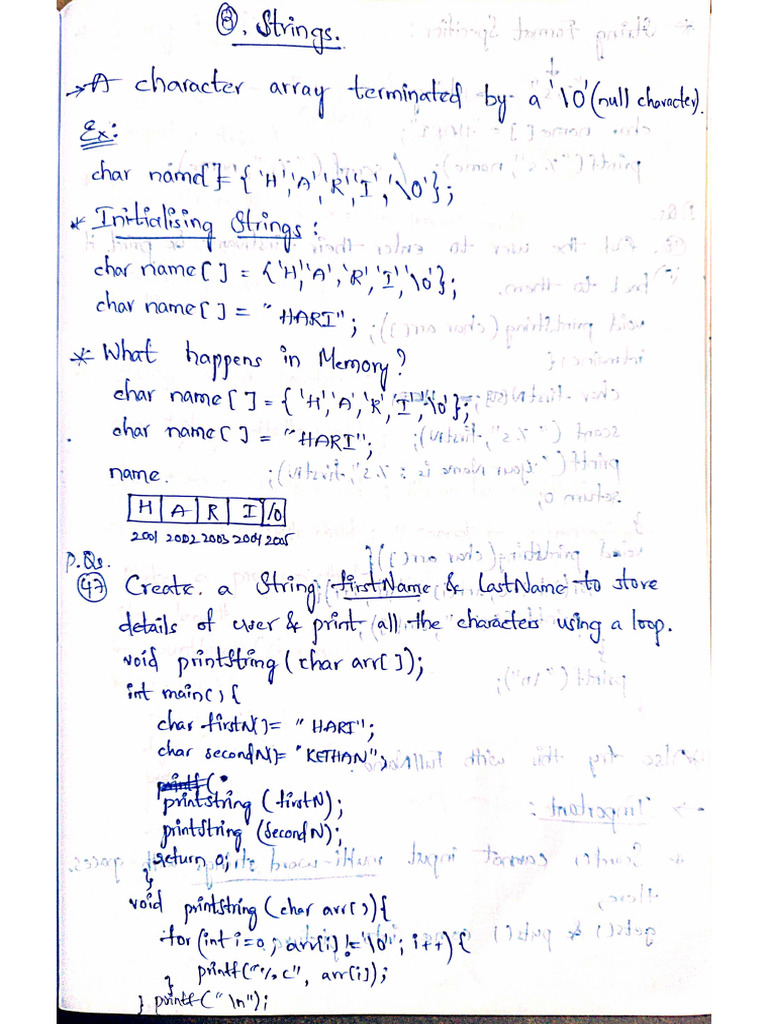 ⑧. Strings.
→ A character array terminated by a '\0' (null character).
Ex:
char name[]= {'H','A','R','I','\0'};
* Initialising Strings:
char name[] = {'H','A','R','I','\0'};
char name[] = "HARI";
* What happens in Memory?
char name[] = {'H','A','R','I','\0'};
char name[] = "HARI";
name.
H A R I \0
2001 2002 2003 2004 2005
P.Qs.
(47) Create a String firstName & lastName to store
details of user & print all the characters using a loop.
void printString (char arr[]);
int main() {
char firstN[]= "HARI";
char secondN[]= "KETHAN";
printf("
printString (firstN);
printString (secondN);
return 0;
}
void printString (char arr[]){
for (int i=0; arr[i] != '\0'; i++) {
printf("%c", arr[i]);
}
} printf("\n");